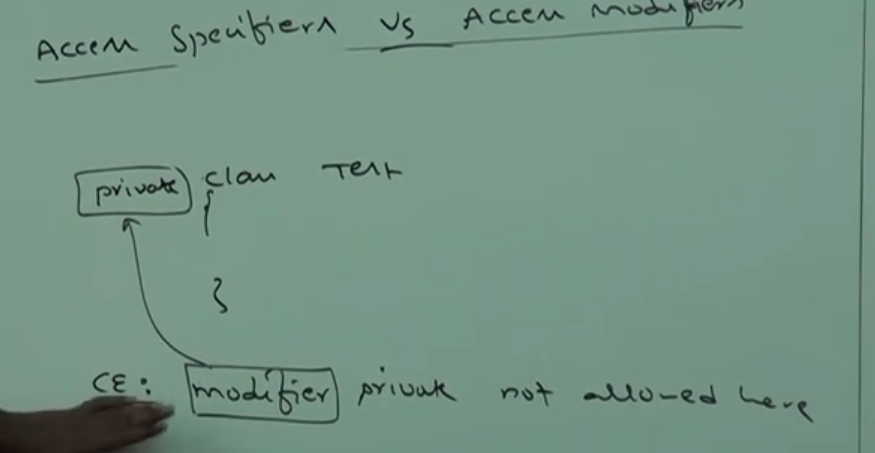 Access Specifiers vs Access Modifiers
private class Test
{
}
CE: modifier private not allowed here